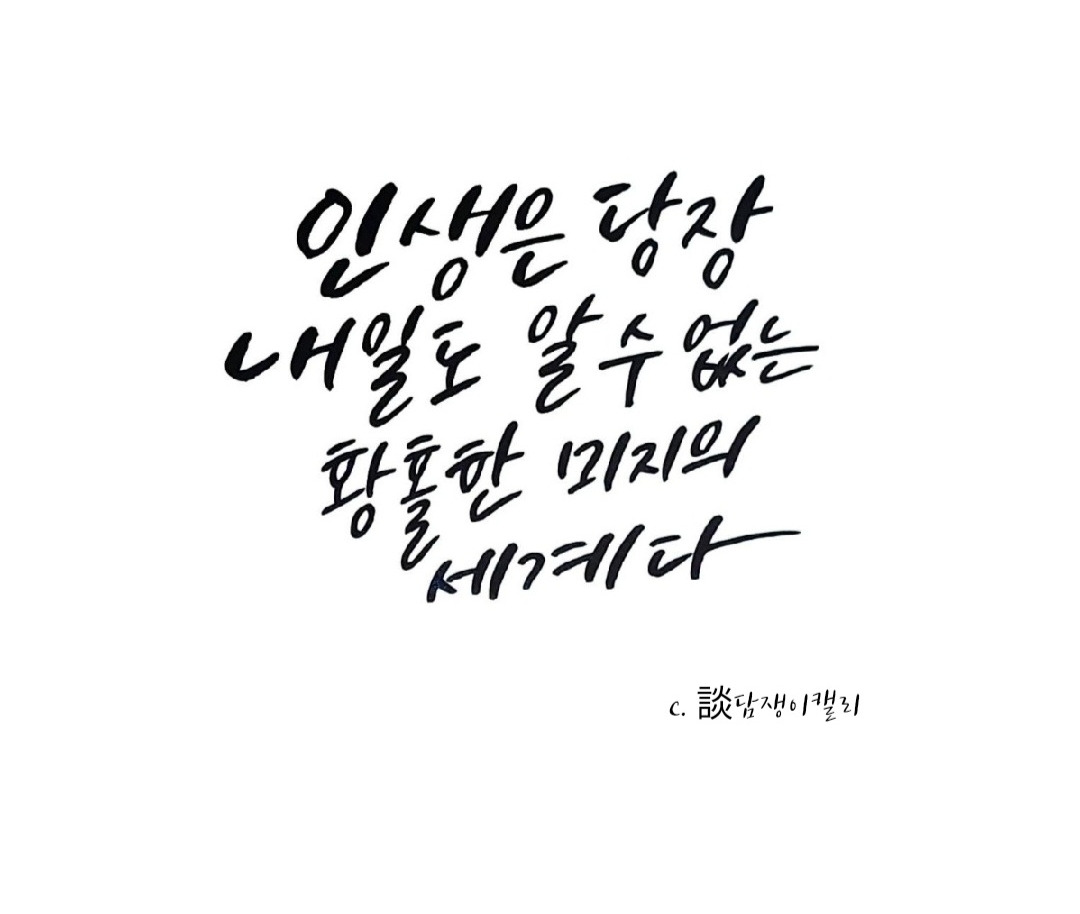 인생은 당장
내일도 알 수 없는
황홀한 미지의
세계다
c. 談담쟁이캘리